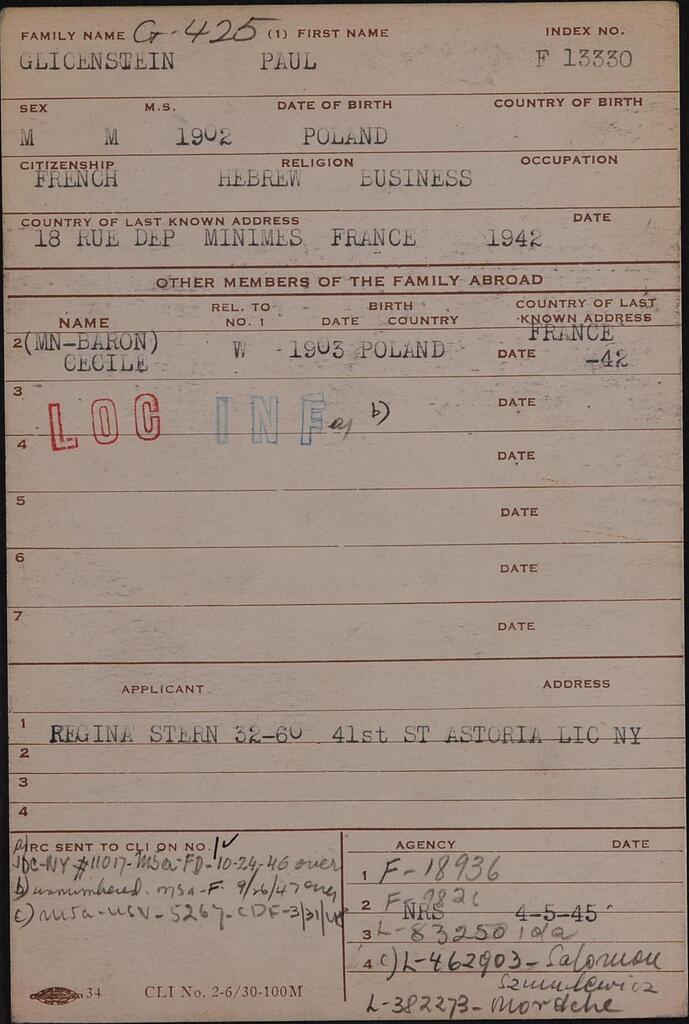 FAMILY NAME G-425 (1) FIRST NAME INDEX NO.
GLICENSTEIN PAUL F 13330
SEX M.S. DATE OF BIRTH COUNTRY OF BIRTH
M M 1902 POLAND
CITIZENSHIP RELIGION OCCUPATION
FRENCH HEBREW BUSINESS
COUNTRY OF LAST KNOWN ADDRESS DATE
18 RUE DEP MINIMES FRANCE 1942
OTHER MEMBERS OF THE FAMILY ABROAD
NAME REL. TO NO. 1 BIRTH DATE COUNTRY COUNTRY OF LAST KNOWN ADDRESS
FRANCE
2 (MN-BARON) W 1903 POLAND DATE -42
CECILE
3 DATE
LOC INF a) b)
4 DATE
5 DATE
6 DATE
7 DATE
APPLICANT ADDRESS
1 REGINA STERN 32-60 41st ST ASTORIA LIC NY
2
3
4
RC SENT TO CLI ON NO. 1 AGENCY DATE
JDC-NY #11017-MSa-FD-10-24-46 over
1 F-18936
b) unnumbered. MSa-F. 9/26/47 over
2
NRS 4-5-45
c) MSa-USV-5267-CDF-3/31/48
3 L-83250 Ida
4 c) L-462903-Salomon
Szmulewicz
L-382273-Mordche
34 CLI No. 2-6/30-100M